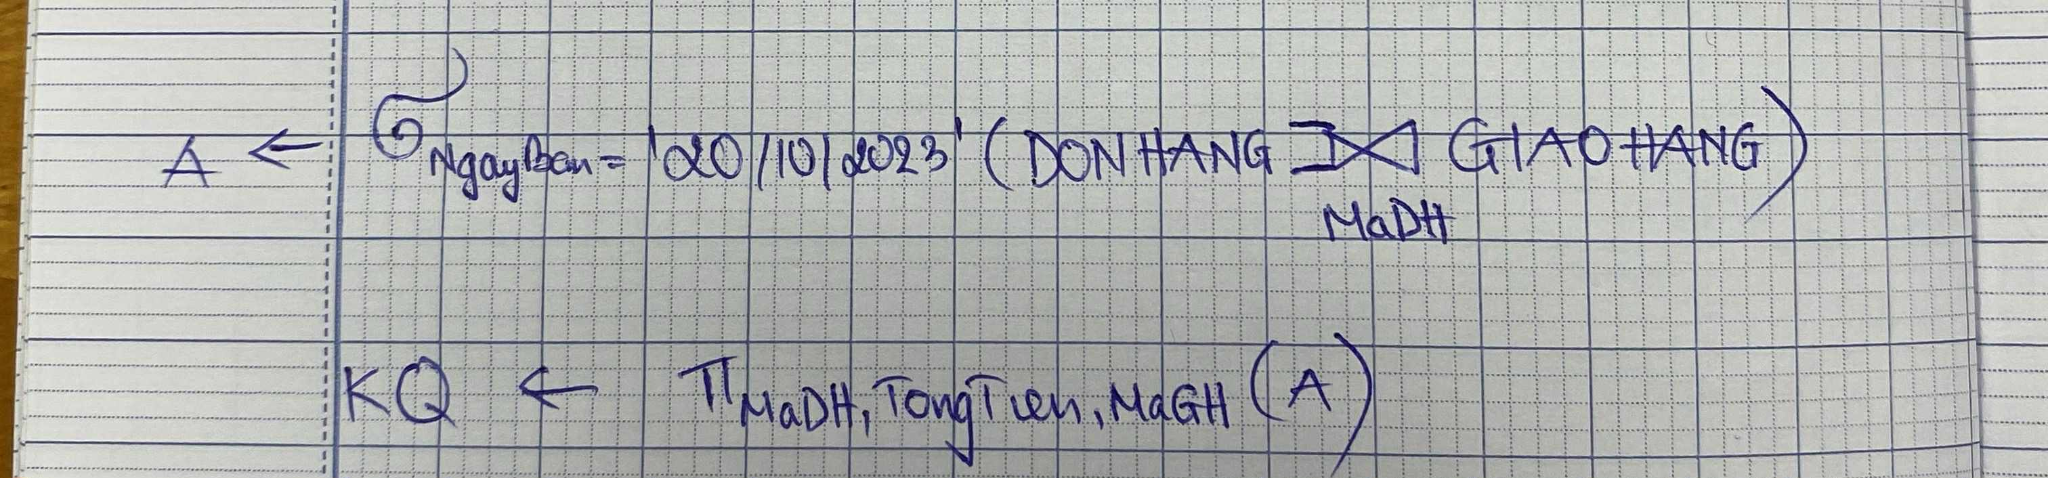 A ← σ NgayBan = '20/10/2023' (DONHANG ⟕ GIAOHANG)
MaDH
KQ ← π MaDH, TongTien, MaGH (A)